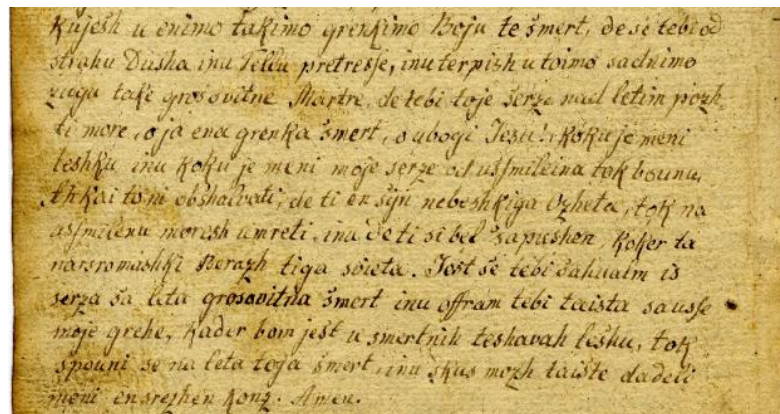 kujesh u enimo takimo grenkimo Boju te šmert, de se tebi od
strahu Dusha inu Tellu pretresje, inu terpish u toimo sadnimo
zugu take grosovitne Martre, de tebi toje šerze nad letim pozh
ti more, o ja ena grenka šmert, o ubogi Jesu! koku je meni
leshku inu koku je meni moje serze od usmileina tok bounu,
kai to ni obshalvati, de ti en sijn nebeshkiga Ozheta, tok na
usmilenu moresh umreti, inu de ti si bel sapushen, koker ta
narsromashki Berazh tiga svieta. Jest se tebi sahvalm is
serza sa leta grosovitna šmert inu offram tebi taista sa usse
moje grehe, kader bom jest u smertnih teshavah leshu, tok
spouni se na leta toja šmert, inu skus mozh taiste dadeli
meni en srezhen konz. Amen.